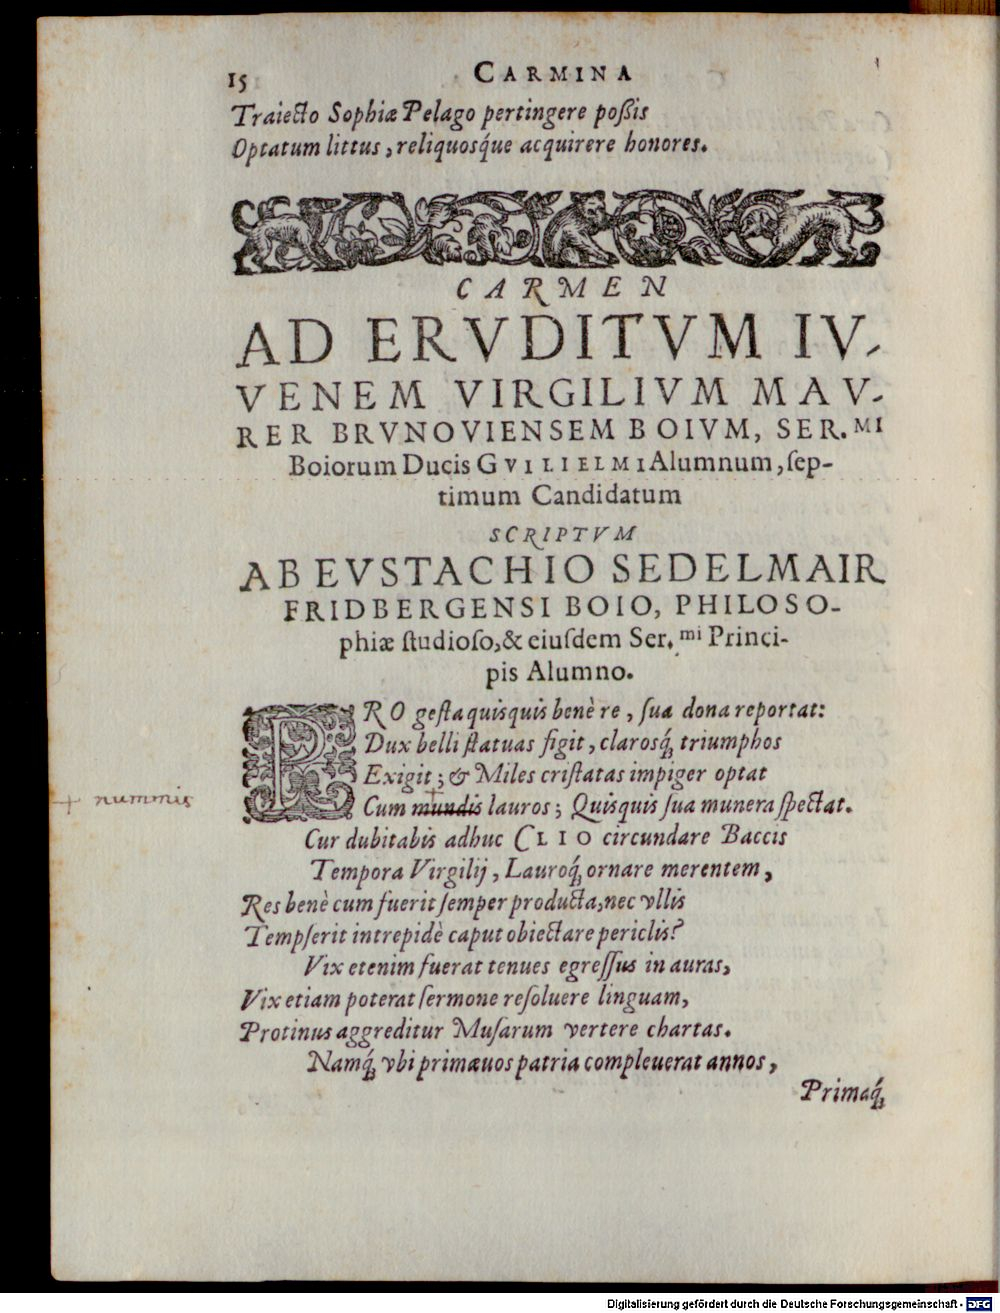 15 CARMINA
Traiecto Sophiæ Pelago pertingere poßis
Optatum littus, reliquosq́ue acquirere honores.
CARMEN
AD ERVDITVM IV-
VENEM VIRGILIVM MAV-
RER BRVNOVIENSEM BOIVM, SER.MI
Boiorum Ducis GVILIELMI Alumnum, ſep-
timum Candidatum
SCRIPTVM
AB EVSTACHIO SEDELMAIR
FRIDBERGENSI BOIO, PHILOSO-
phiæ ſtudioſo, & eiuſdem Ser.mi Princi-
pis Alumno.
PRO geſta quisquis benè re, ſua dona reportat:
Dux belli ſtatuas figit, clarosq́; triumphos
Exigit; & Miles criſtatas impiger optat
+ nummis
Cum mundis lauros; Quisquis ſua munera ſpectat.
Cur dubitabis adhuc CLIO circundare Baccis
Tempora Virgilij, Lauroq́; ornare merentem,
Res benè cum fuerit ſemper producta, nec vllis
Tempſerit intrepidè caput obiectare periclis?
Vix etenim fuerat tenues egreſſus in auras,
Vix etiam poterat ſermone reſoluere linguam,
Protinus aggreditur Muſarum vertere chartas.
Namq́; vbi primæuos patria compleuerat annos,
Primaq́;
Digitalisierung gefördert durch die Deutsche Forschungsgemeinschaft - DFG